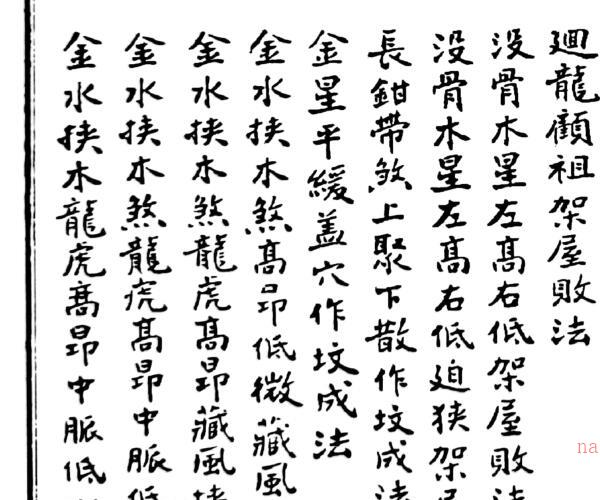 廻龍顧祖架屋敗法
没骨木星左高右低架屋敗法
没骨木星左高右低廹狭架
長鉗帶煞上聚下散作坟成法
金星平緩盖穴作坟成法
金水挟木煞高昂低微藏風
金水挟木煞龍虎高昂藏風
金水挟木煞龍虎高昂中脈
金水挟木龍虎高昂中脈低
na